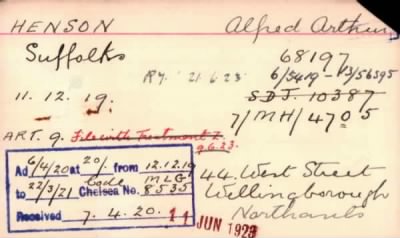 HENSON Alfred Arthur
Suffolks 68197
R4. 21.6.23. 6/5419 - 13/56595
11. 12. 19. S.D.J. 10387
7/MH/4705
ART. 9. File with Treatment 2.
9.6.23.
Ad 6/4/20 at 20/. from 12.12.19
Code MLG
to 22/3/21 Chelsea No. 8535
Received 7. 4. 20.
44. West Street
Wellingborough
Northants
11 JUN 1923